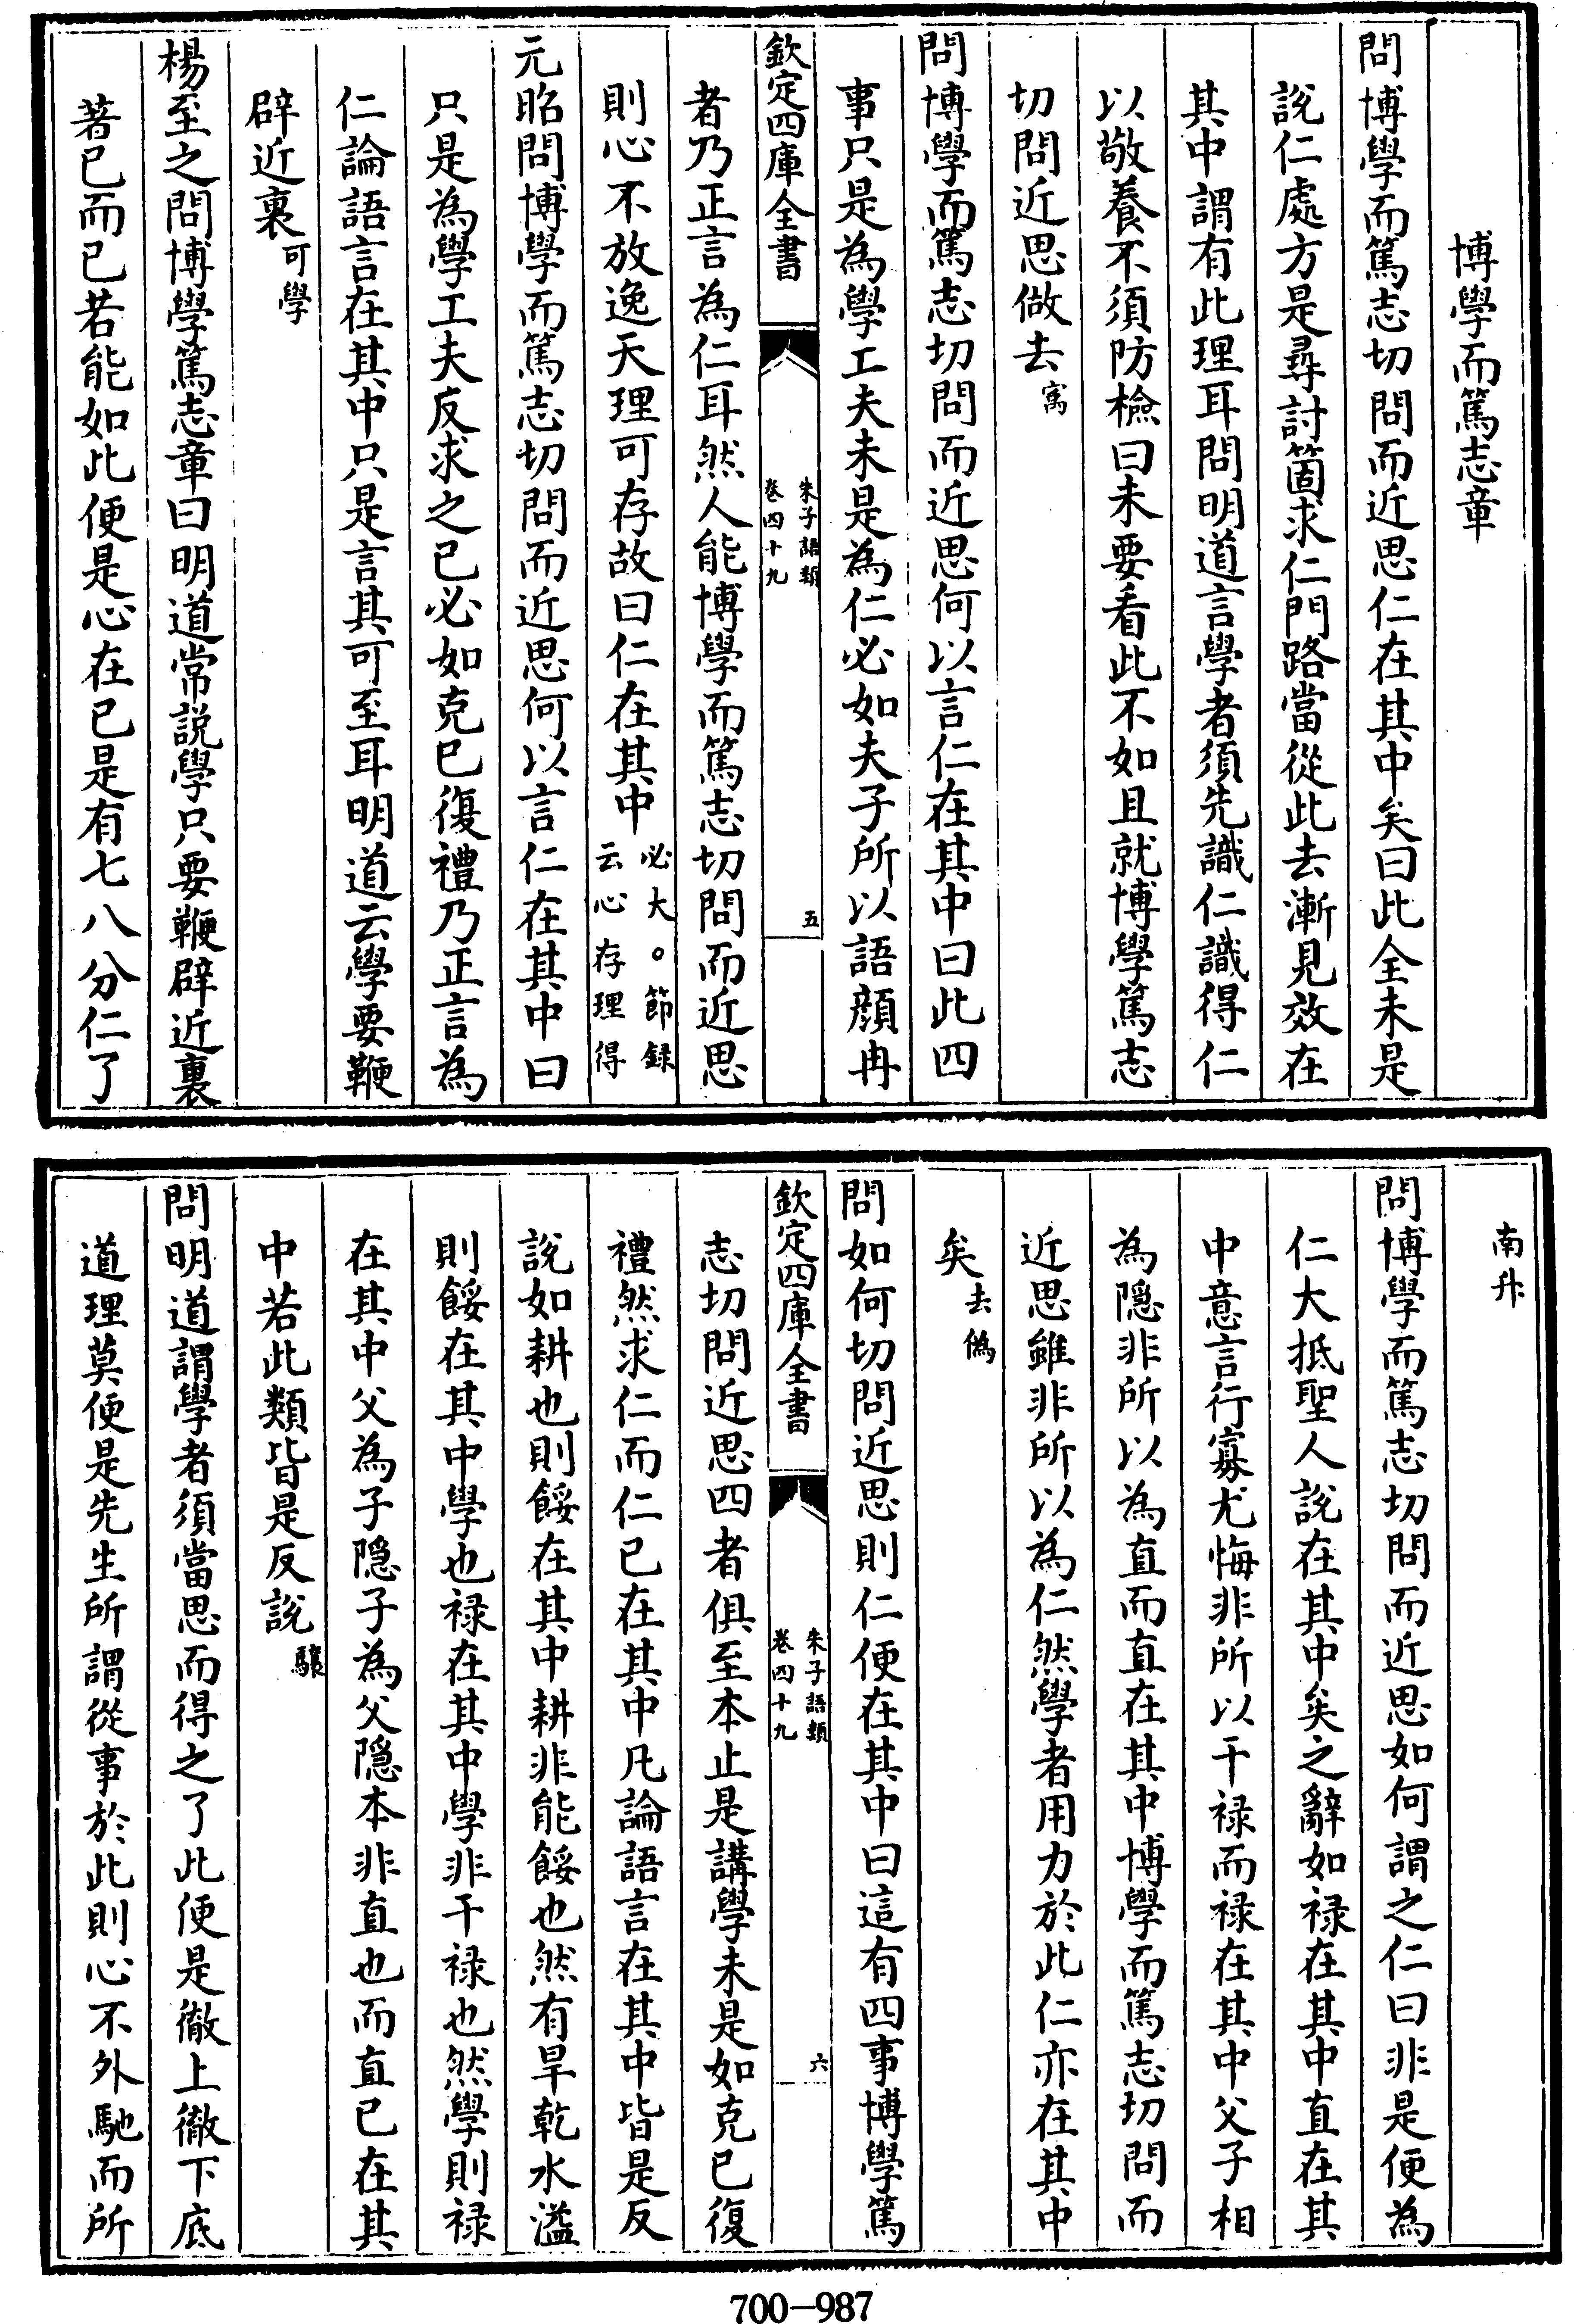 博學而篤志章
問博學而篤志切問而近思仁在其中矣曰此全未是
說仁處方是尋討箇求仁門路當從此去漸見效在
其中謂有此理耳問明道言學者須先識仁識得仁
以敬養不須防檢曰未要看此不如且就博學篤志
切問近思做去㝢
問博學而篤志切問而近思何以言仁在其中曰此四
事只是為學工夫未是為仁必如夫子所以語顔冉
欽定四庫全書
朱子語類
卷四十九
五
者乃正言為仁耳然人能博學而篤志切問而近思
則心不放逸天理可存故曰仁在其中必大。節録
云心存理得
元昭問博學而篤志切問而近思何以言仁在其中曰
只是為學工夫反求之己必如克已復禮乃正言為
仁論語言在其中只是言其可至耳明道云學要鞭
辟近裏可學
楊至之問博學篤志章曰明道常説學只要鞭辟近裏
著已而已若能如此便是心在已是有七八分仁了
南升
問博學而篤志切問而近思如何謂之仁曰非是便為
仁大抵聖人說在其中矣之辭如禄在其中直在其
中意言行寡尤悔非所以干禄而禄在其中父子相
為隠非所以為直而直在其中博學而篤志切問而
近思雖非所以為仁然學者用力於此仁亦在其中
矣去偽
問如何切問近思則仁便在其中曰這有四事博學篤
欽定四庫全書
朱子語類
卷四十九
六
志切問近思四者俱至本止是講學未是如克已復
禮然求仁而仁已在其中凡論語言在其中皆是反
說如耕也則餒在其中耕非能餒也然有旱乾水溢
則餒在其中學也禄在其中學非干禄也然學則禄
在其中父為子隠子為父隠本非直也而直已在其
中若此類皆是反說驤
問明道謂學者須當思而得之了此便是徹上徹下底
道理莫便是先生所謂從事於此則心不外馳而所
700-987